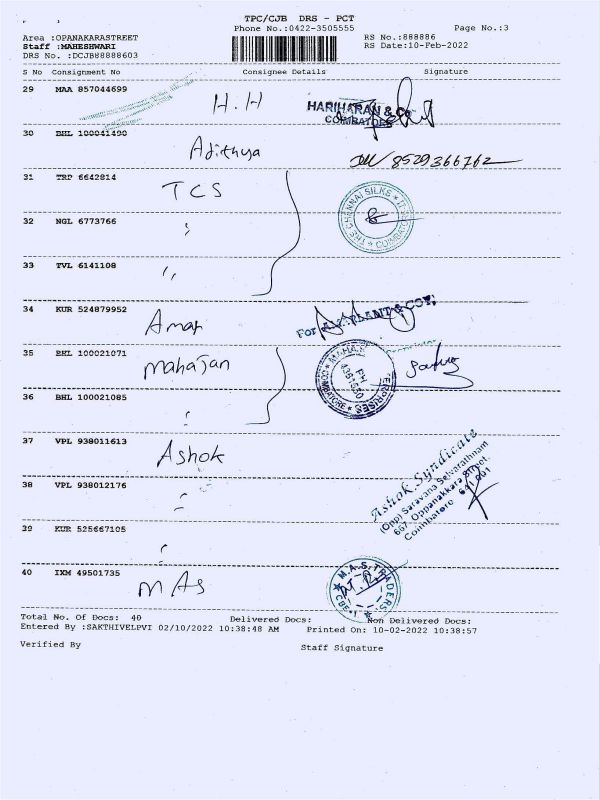 TPC/CJB DRS - PCT
Phone No.:0422-3505555
Page No.:3
Area :OPANAKARASTREET
RS No.:888886
Staff :MAHESHWARI
RS Date:10-Feb-2022
DRS No. :DCJB88888603
S No Consignment No Consignee Details Signature
29 MAA 857044699 H.H HARIHARAN & Co
COIMBATORE
30 BHL 100041490 Adithya 8529366762
31 TRP 6642814 TCS THE CHENNAI SILKS COIMBATORE
32 NGL 6773766 "
33 TVL 6141108 "
34 KUR 524879952 Amar For
35 BHL 100021071 Mahajan
36 BHL 100021085 "
37 VPL 938011613 Ashok
38 VPL 938012176 "
Ashok Syndicate
(Opp) Saravana Selvarathnam
667, Oppanakkara Street,
Coimbatore - 641 001
39 KUR 525667105 "
40 IXM 49501735 MAS M.A.S. TRADERS CBE-1
Total No. Of Docs: 40 Delivered Docs: Non Delivered Docs:
Entered By :SAKTHIVELPVI 02/10/2022 10:38:48 AM Printed On: 10-02-2022 10:38:57
Verified By Staff Signature